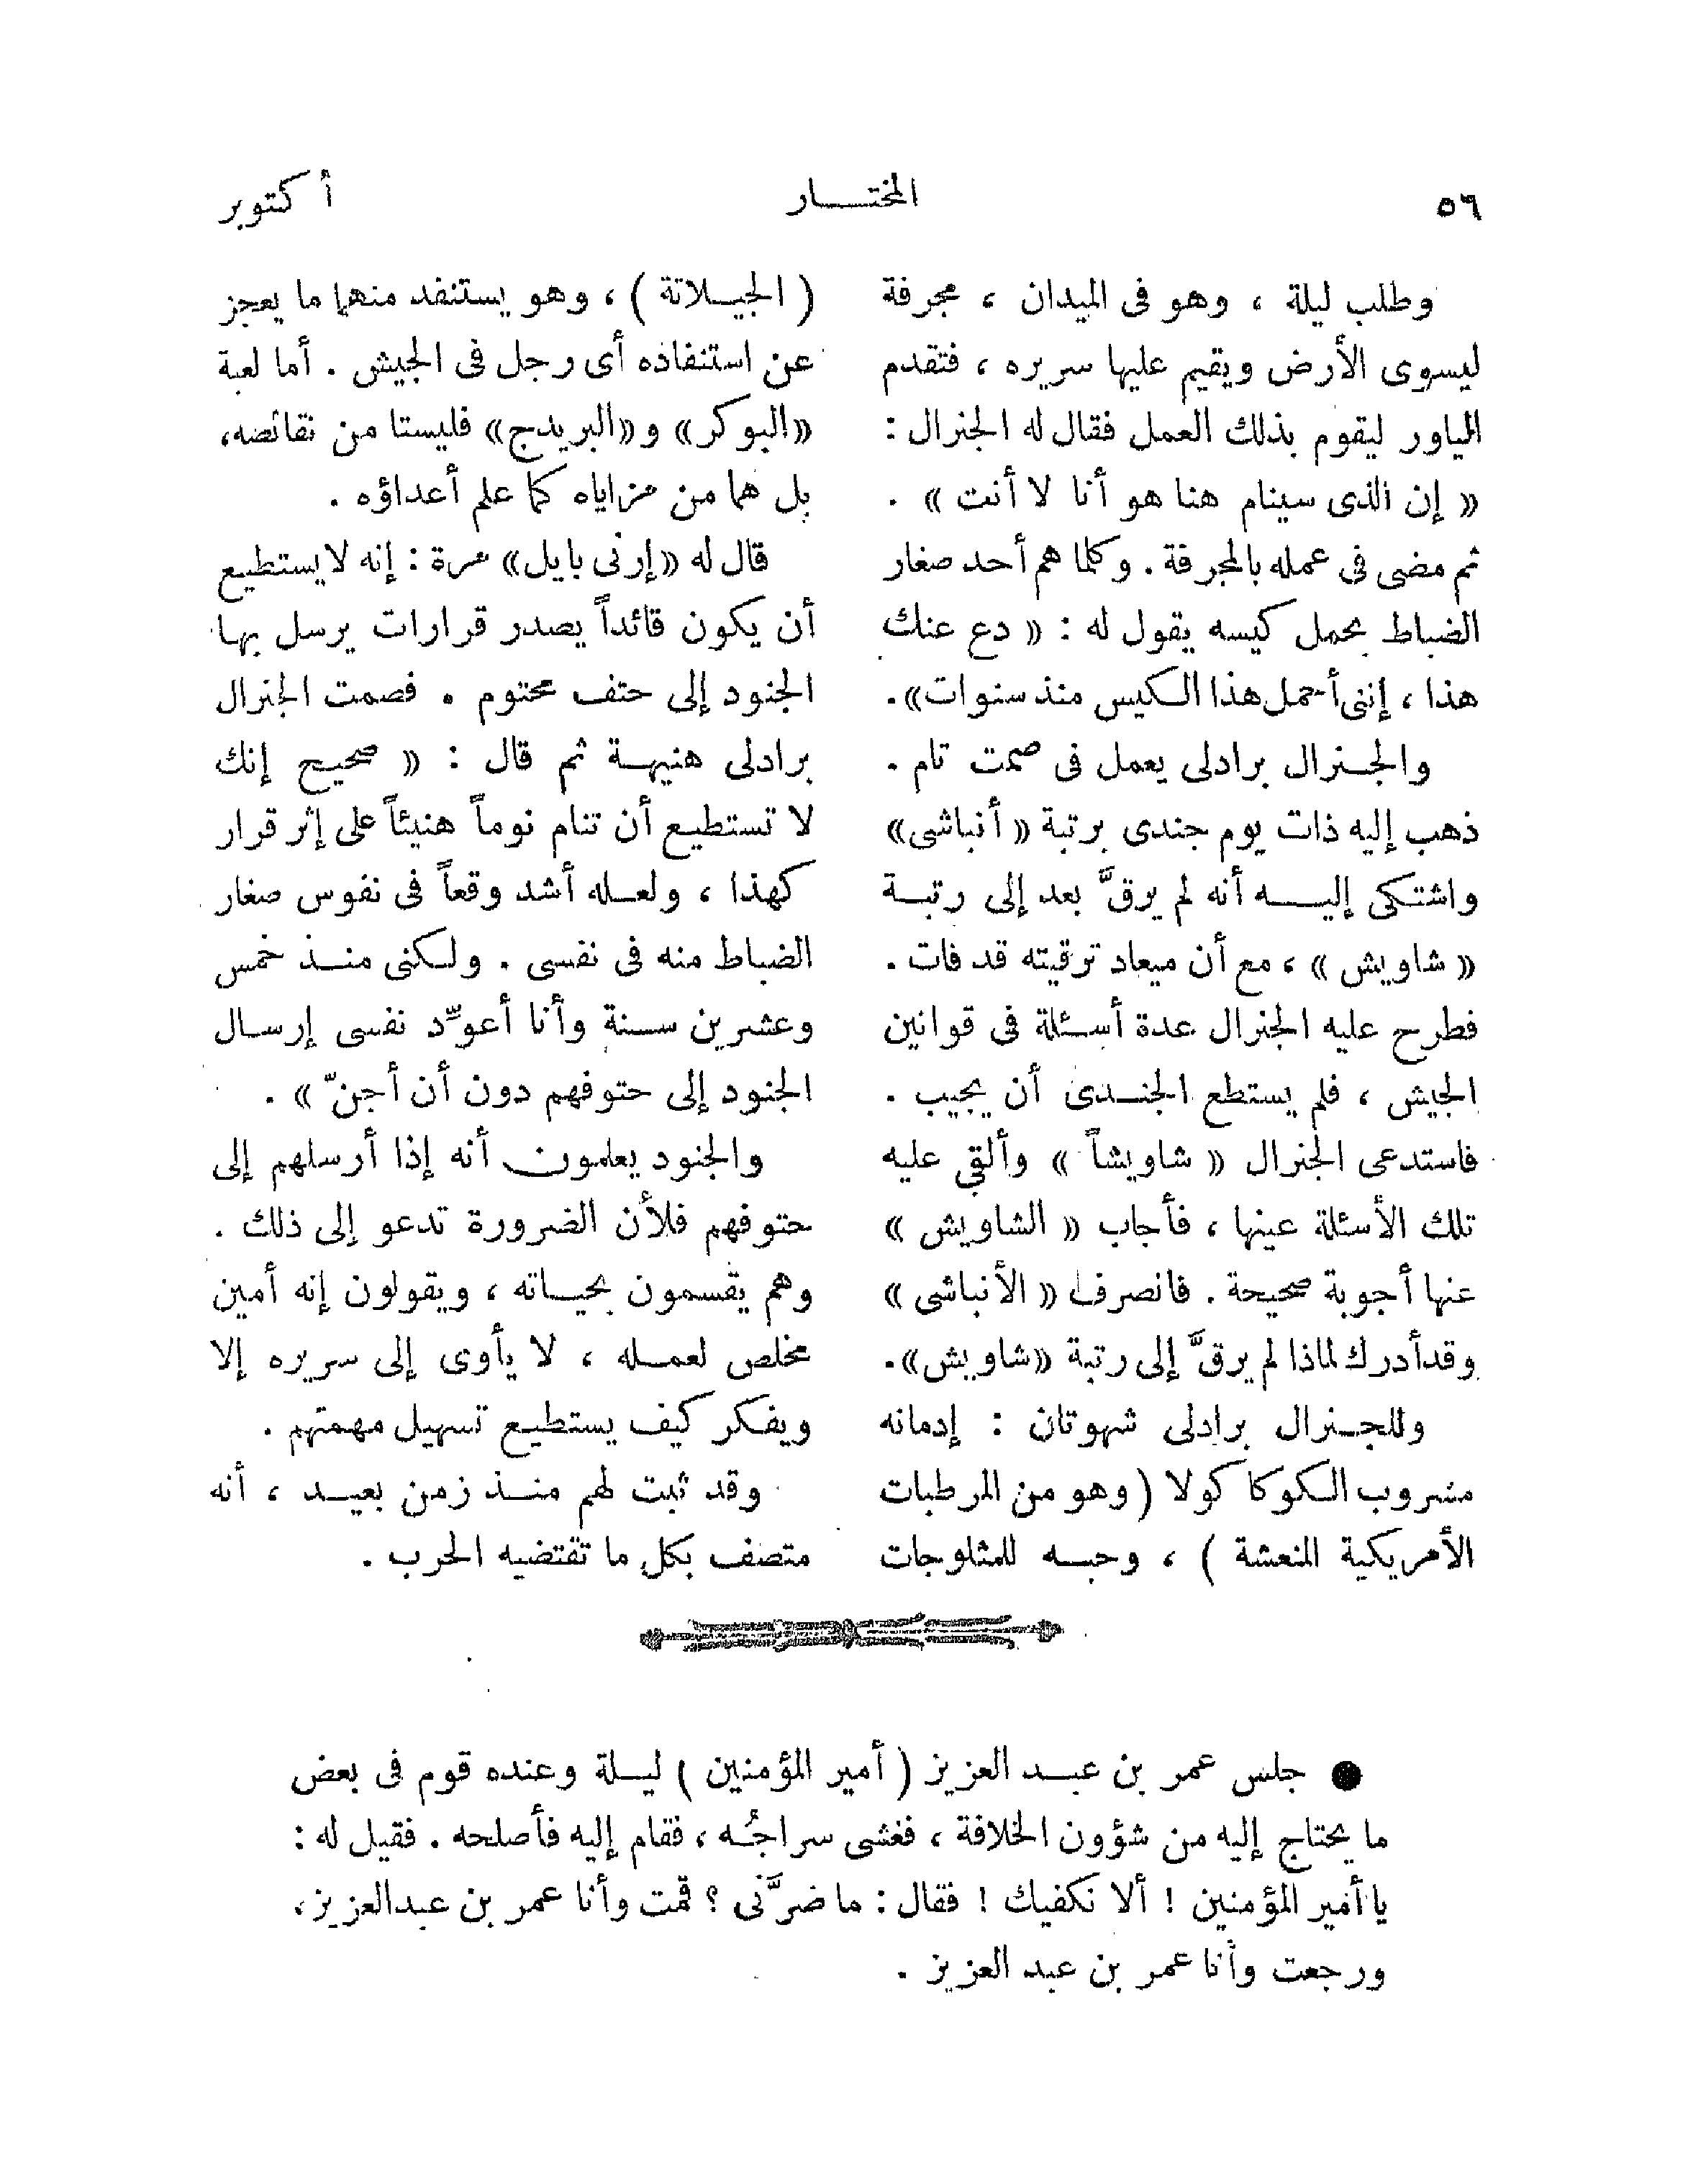 ٥٦
المختار
أكتوبر
وطلب ليلة ، وهو فى الميدان ، مجرفة
ليسوى الأرض ويقيم عليها سريره ، فتقدم
الياور ليقوم بذلك العمل فقال له الجنرال :
« إن الذى سينام هنا هو أنا لا أنت » .
ثم مضى فى عمله بالمجرفة . وكلما هم أحد صغار
الضباط بحمل كيسه يقول له : « دع عنك
هذا ، إننى أحمل هذا الكيس منذ سنوات» .
والجنرال برادلى يعمل فى صمت تام .
ذهب إليه ذات يوم جندى برتبة « أنباشى»
واشتكى إليه أنه لم يرقَّ بعد إلى رتبة
« شاويش » ، مع أن ميعاد ترقيته قد فات .
فطرح عليه الجنرال عدة أسئلة فى قوانين
الجيش ، فلم يستطع الجندى أن يجيب .
فاستدعى الجنرال « شاويشاً » وألقى عليه
تلك الأسئلة عينها ، فأجاب « الشاويش »
عنها أجوبة صحيحة . فانصرف « الأنباشى »
وقد أدرك لماذا لم يرقَّ إلى رتبة «شاويش» .
وللجنرال برادلى شهوتان : إدمانه
مشروب الكوكا كولا ( وهو من المرطبات
الأمريكية المنعشة ) ، وحبه للمثلوجات
( الجيلاتة ) ، وهو يستنفد منهما ما يعجز
عن استنفاده أى رجل فى الجيش . أما لعبة
«البوكر» و«البريدج» فليستا من نقائصه،
بل هما من مزاياه كما علم أعداؤه .
قال له «إرنى بايل» مرة : إنه لا يستطيع
أن يكون قائداً يصدر قرارات يرسل بها
الجنود إلى حتف محتوم . فصمت الجنرال
برادلى هنيهة ثم قال : « صحيح إنك
لا تستطيع أن تنام نوماً هنيئاً على إثر قرار
كهذا ، ولعله أشد وقعاً فى نفوس صغار
الضباط منه فى نفسى . ولكنى منذ خمس
وعشرين سنة وأنا أعوِّد نفسى إرسال
الجنود إلى حتوفهم دون أن أجنّ » .
والجنود يعلمون أنه إذا أرسلهم إلى
حتوفهم فلأن الضرورة تدعو إلى ذلك .
وهم يقسمون بحياته ، ويقولون إنه أمين
مخلص لعمله ، لا يأوى إلى سريره إلا
ويفكر كيف يستطيع تسهيل مهمتهم .
وقد ثبت لهم منذ زمن بعيد ، أنه
متصف بكل ما تقتضيه الحرب .
● جلس عمر بن عبد العزيز ( أمير المؤمنين ) ليلة وعنده قوم فى بعض
ما يحتاج إليه من شؤون الخلافة ، فغشى سراجُه ، فقام إليه فأصلحه . فقيل له :
يا أمير المؤمنين ! ألا نكفيك ! فقال : ما ضرَّنى ؟ قمت وأنا عمر بن عبدالعزيز،
ورجعت وأنا عمر بن عبد العزيز .